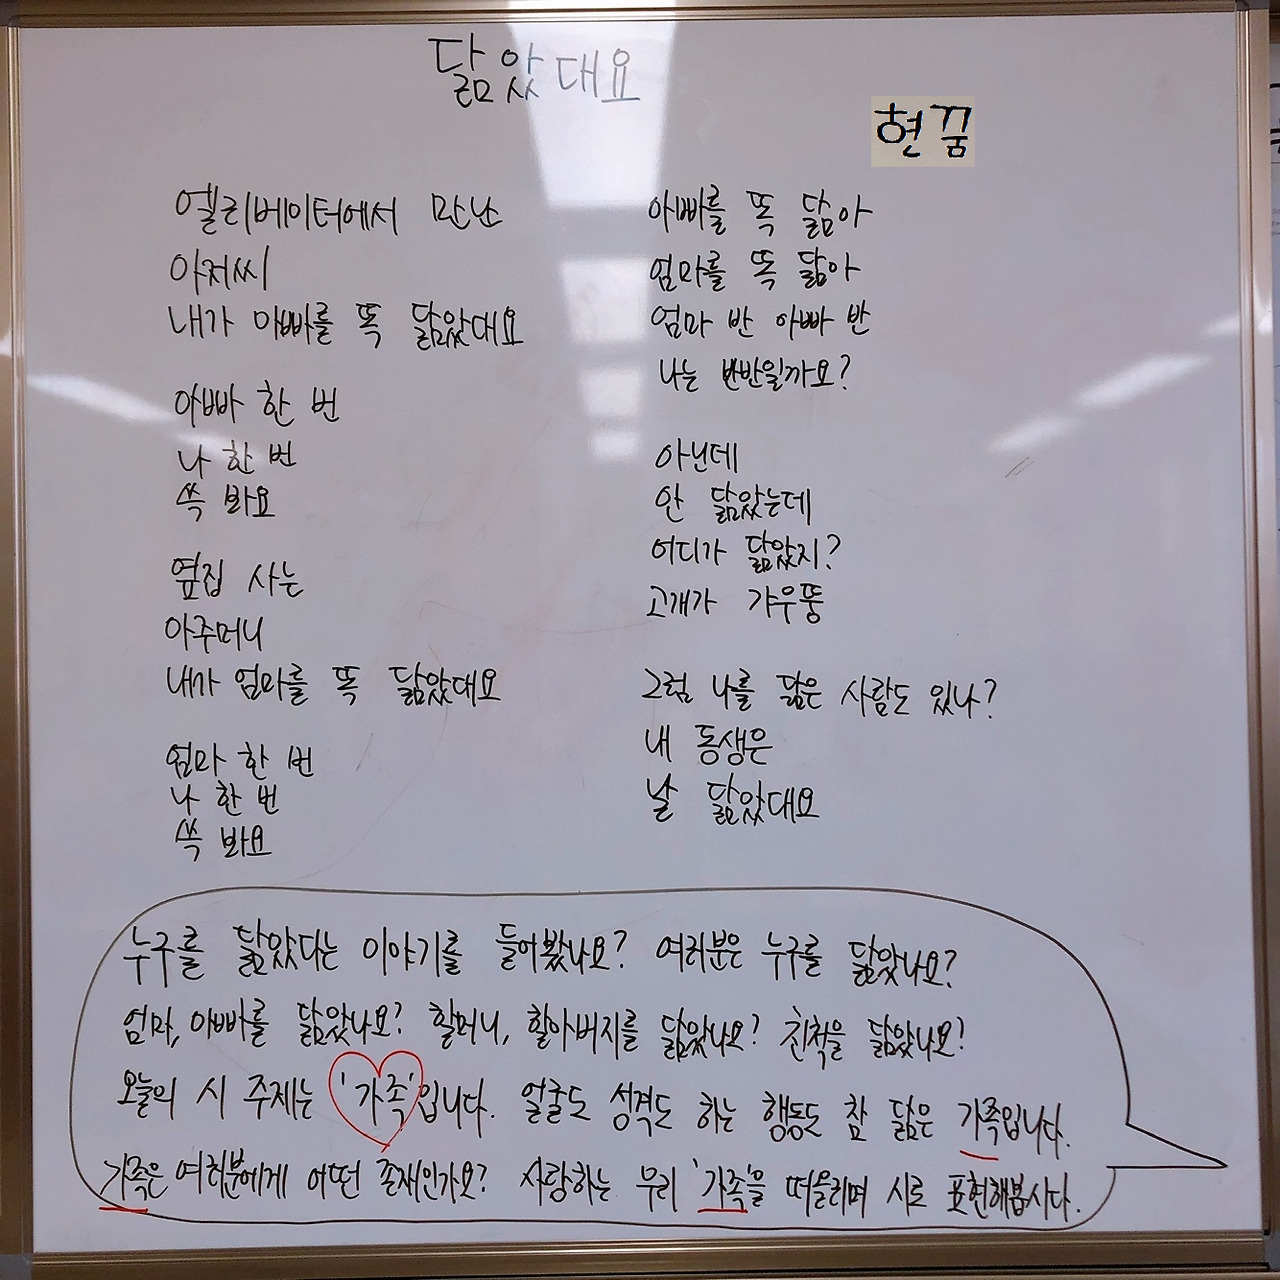 닮았대요
현꿈
엘리베이터에서 만난
아저씨
내가 아빠를 똑 닮았대요
아빠 한 번
나 한 번
쓱 봐요
옆집 사는
아주머니
내가 엄마를 똑 닮았대요
엄마 한 번
나 한 번
쓱 봐요
아빠를 똑 닮아
엄마를 똑 닮아
엄마 반 아빠 반
나는 반반일까요?
아닌데
안 닮았는데
어디가 닮았지?
고개가 갸우뚱
그럼 나를 닮은 사람도 있나?
내 동생은
날 닮았대요
누구를 닮았다는 이야기를 들어봤나요? 여러분은 누구를 닮았나요?
엄마, 아빠를 닮았나요? 할머니, 할아버지를 닮았나요? 친척을 닮았나요?
오늘의 시 주제는 '가족'입니다. 얼굴도 성격도 하는 행동도 참 닮은 가족입니다.
가족은 여러분에게 어떤 존재인가요? 사랑하는 우리 '가족'을 떠올리며 시로 표현해봅시다.